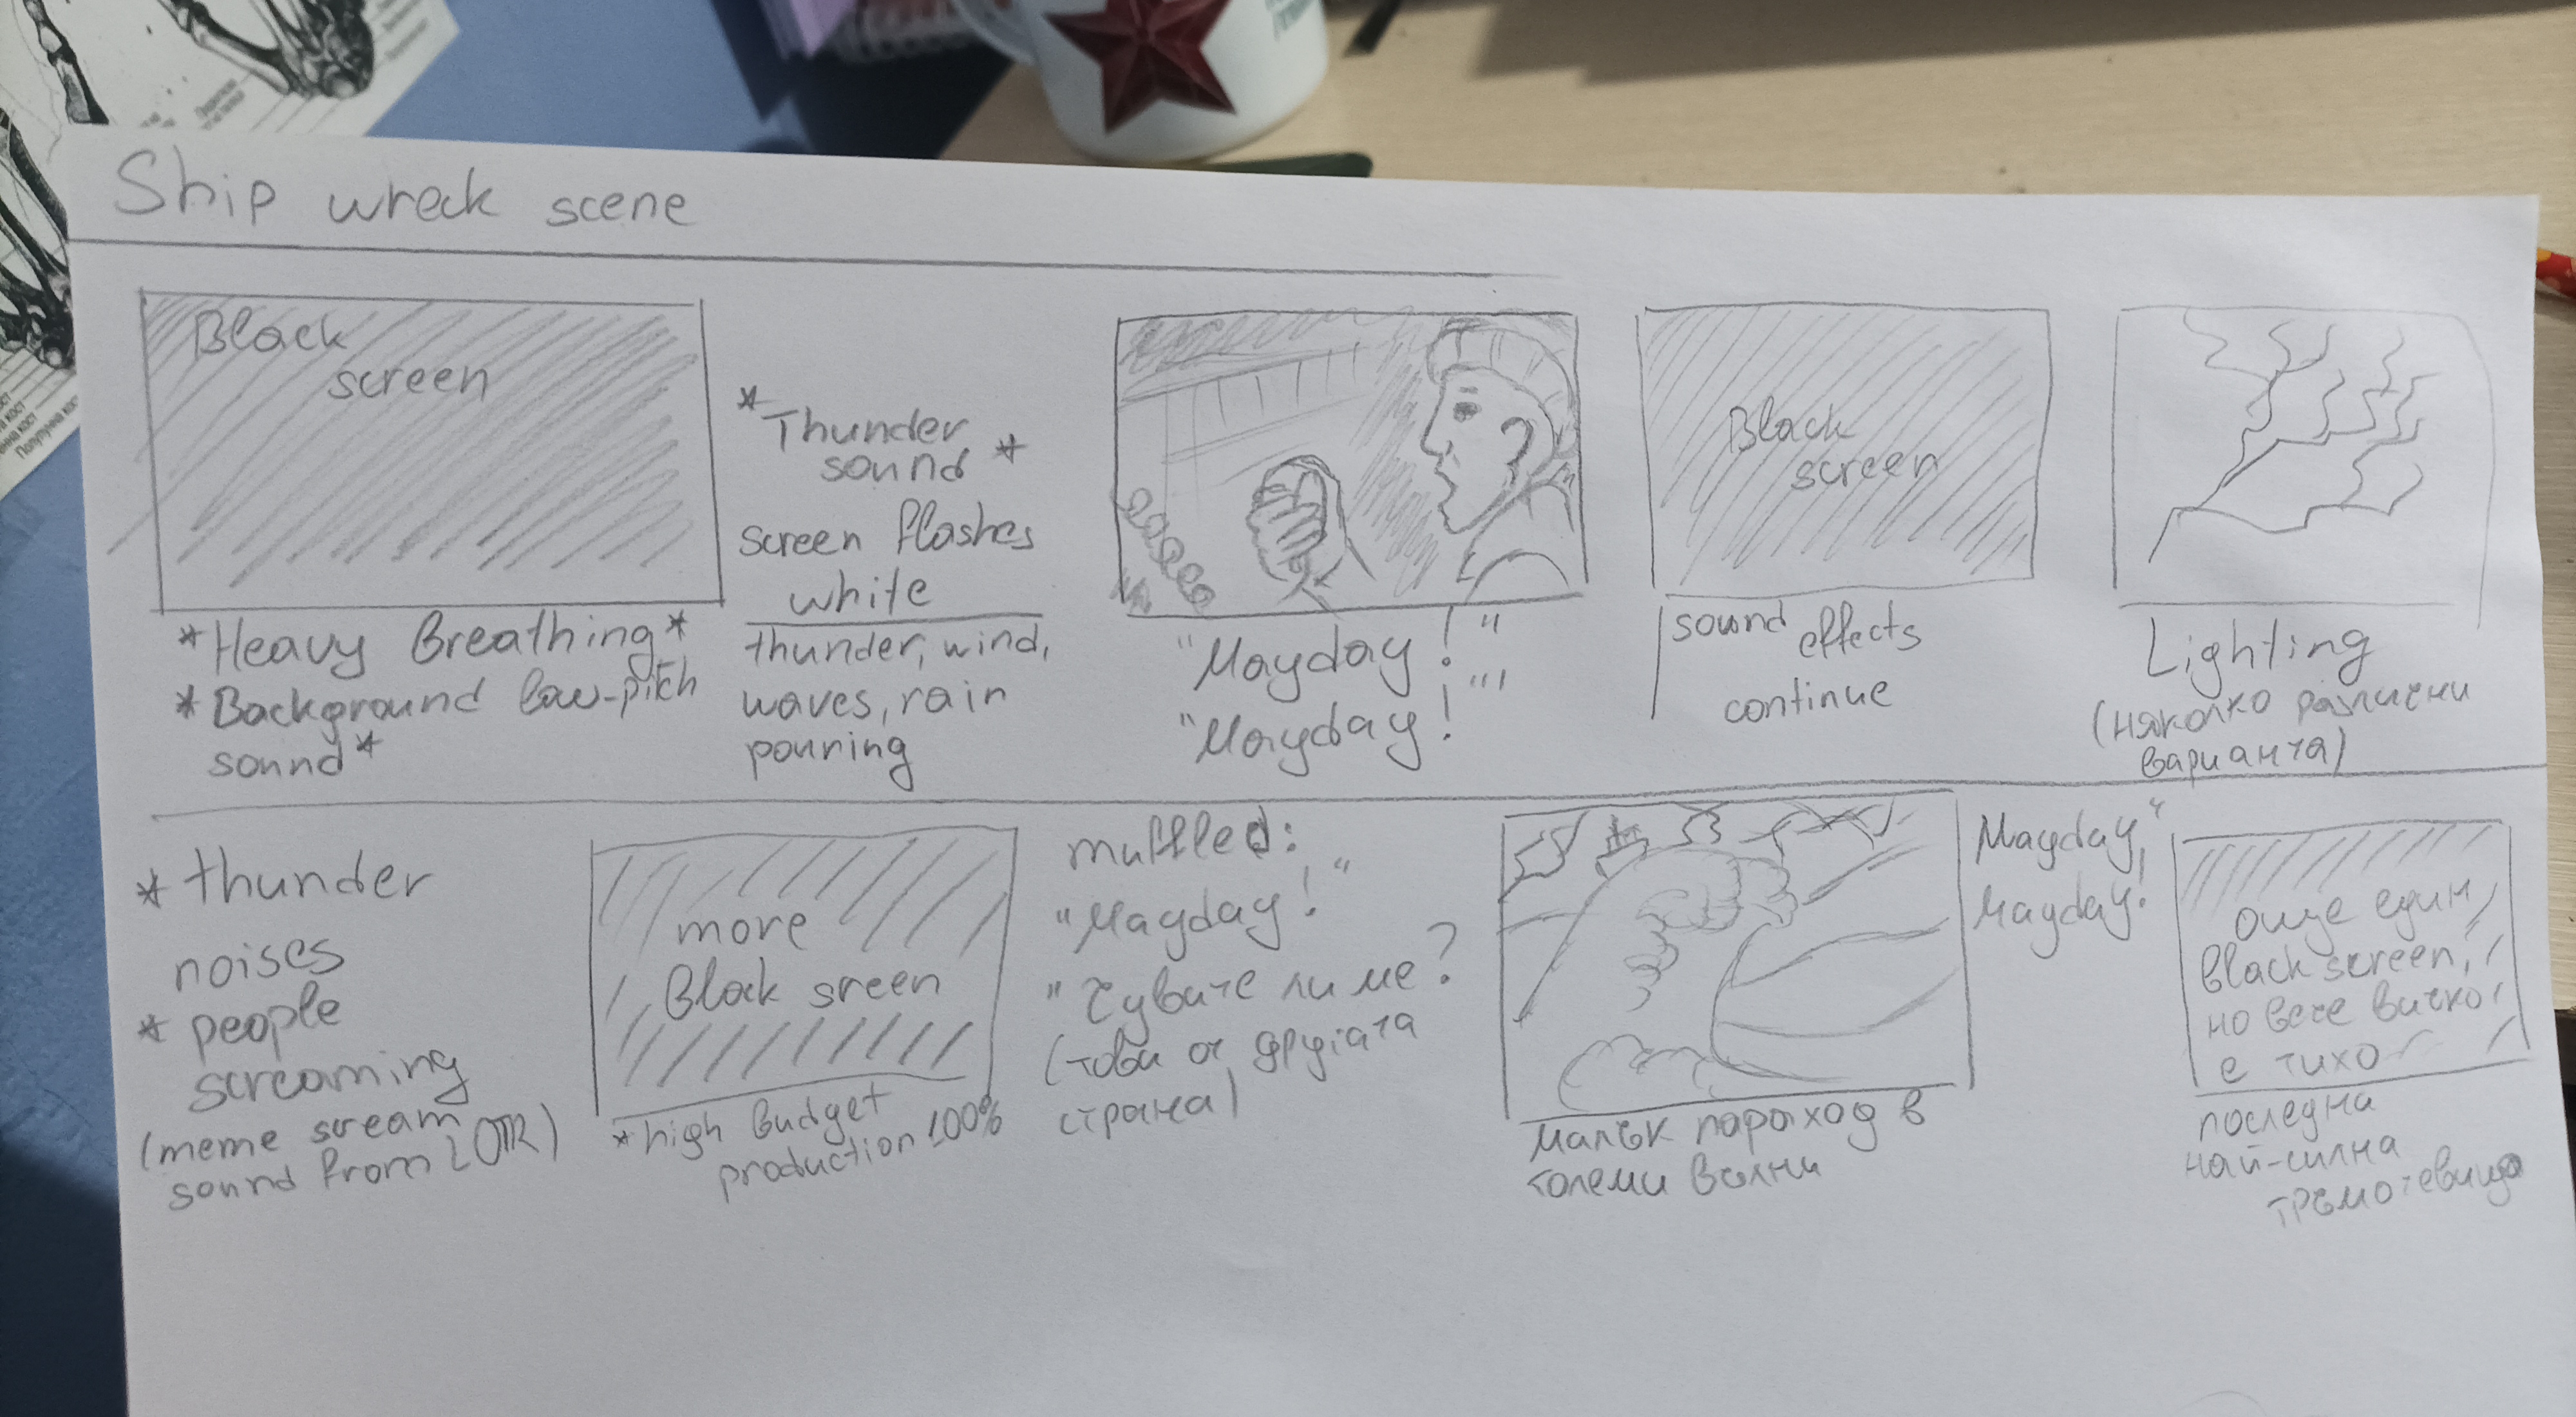 Ship wreck scene
Black
screen
*Heavy Breathing*
*Background low-pitch
sound*
*Thunder
sound *
screen flashes
white
thunder, wind,
waves, rain
pouring
"Mayday!"
"Mayday!"
Black
screen
sound effects
continue
Lighting
(няколко различни
варианта)
* thunder
noises
* people
screaming
(meme scream
sound from LOTR)
more
Black sreen
*high budget
production 100%
muffled:
"Mayday!"
"Чувате ли ме?
(това от другата
страна)
малък параход в
големи вълни
Mayday,"
Mayday!
още един
black screen,
но вече вичко
е тихо
последна
най-силна
гръмотевица